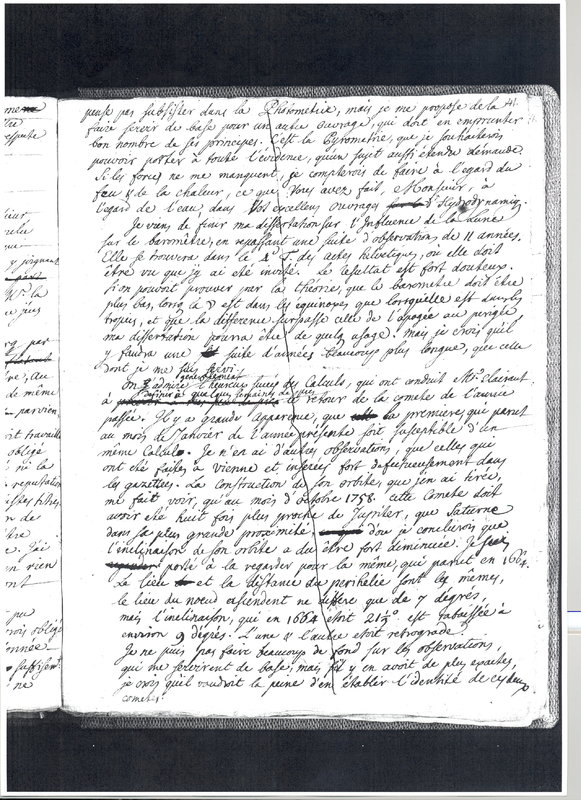 pense pas subsister dans la Photometrie, mais je me propose de la 41.
faire servir de base pour un autre ouvrage, qui doit en emprunter
bon nombre de ses principes. C'est la Pyrometrie, que je souhaiterois
pouvoir porter à toute l'evidence, qu'un sujet aussi étendu demande.
Si les forces ne me manquent, je compterois de faire à l'egard du
feu & de la chaleur, ce que Vous avez fait, Monsieur, à
l'egard de l'eau dans Vos excellens ouvrages d'Hydrodynamiq.
Je viens de finir ma dissertation sur l'Influence de la Lune
sur le barometre, en repassant une suite d'observations de 11 années.
Elle se trouvera dans le 4e T. des actes helvetiques, où elle doit
être vu que j'y ai eté invité. Le resultat est fort douteux.
Si on pouvoit prouver par la théorie, que le barometre doit être
plus bas, lorsq la ☽ est dans les equinoxes que lorsqu'elle est dans les
tropiq, et que la difference surpasse celle de l'apogée au perigée,
ma dissertation pourra être de quelq usage. mais je crois qu'il
y faudra une suite d'années beaucoup plus longue, que celle
dont je me suis servi.
On admire generalement l'heureux succès des Calculs, qui ont conduit Mr. Clairaut
à definir à quelques semaines près le retour de la comete de l'année
passée. Il y a grande apparence, que la premiere, qui parut
au mois de Janvier de l'année présente soit susceptible d'un
même Calcul. Je n'en ai d'autres observations, que celles qui
ont eté faites à Vienne et inserées fort defectueusement dans
les gazettes. La construction de son orbite, que j'en ai tirée,
me fait voir, qu'au mois d'octobre 1758. cette Comete doit
avoir eté huit fois plus proche de Jupiter, que Saturne
dans sa plus grande proximité. d'ou je conclurois que
l'inclinaison de son orbite a du être fort diminuée. Je suis
porté à la regarder pour la même, qui parut en 1664.
Le lieu et la distance du perihelie sont les mêmes,
le lieu du noeud ascendent ne differe que de 7 degrés,
mais l'inclinaison, qui en 1664 etoit 21½° est rabaissée à
environ 9 degrés. L'une & l'autre etoit retrograde.
Je ne puis pas faire beaucoup de fond sur les observations,
qui me servirent de base, mais s'il y en avoit de plus exactes,
je crois qu'il vaudroit la peine d'en établir l'identité de ces deux
cometes.